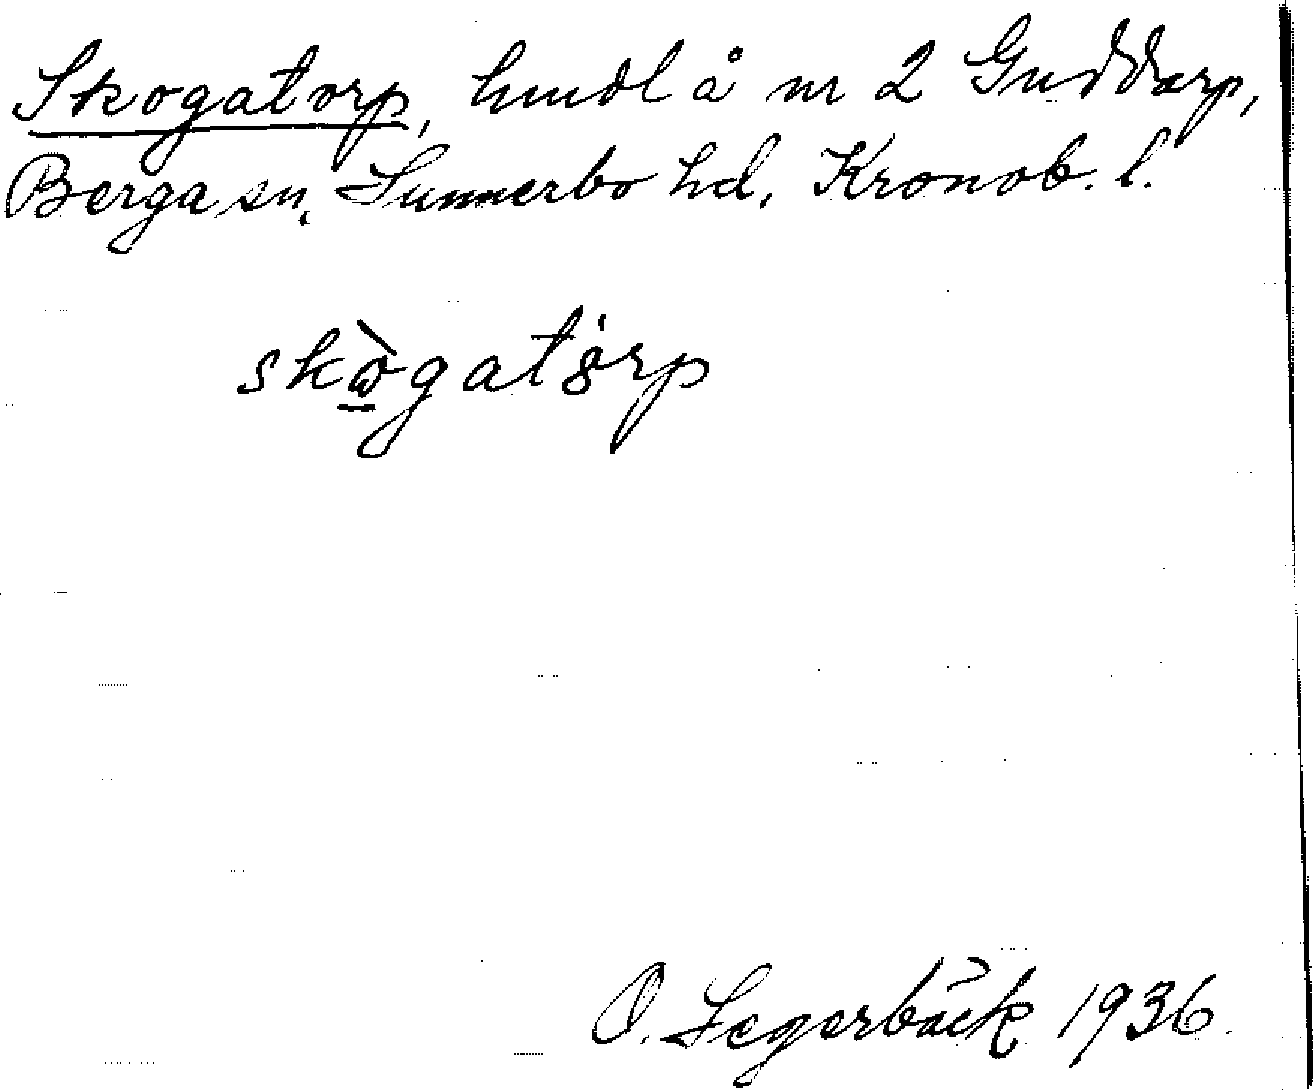 Skogatorp, hmdl å nr 2 Guddarp,
Berga sn, Sunnerbo hd, Kronob. l.
skògatörp
O. Segerbäck 1936.